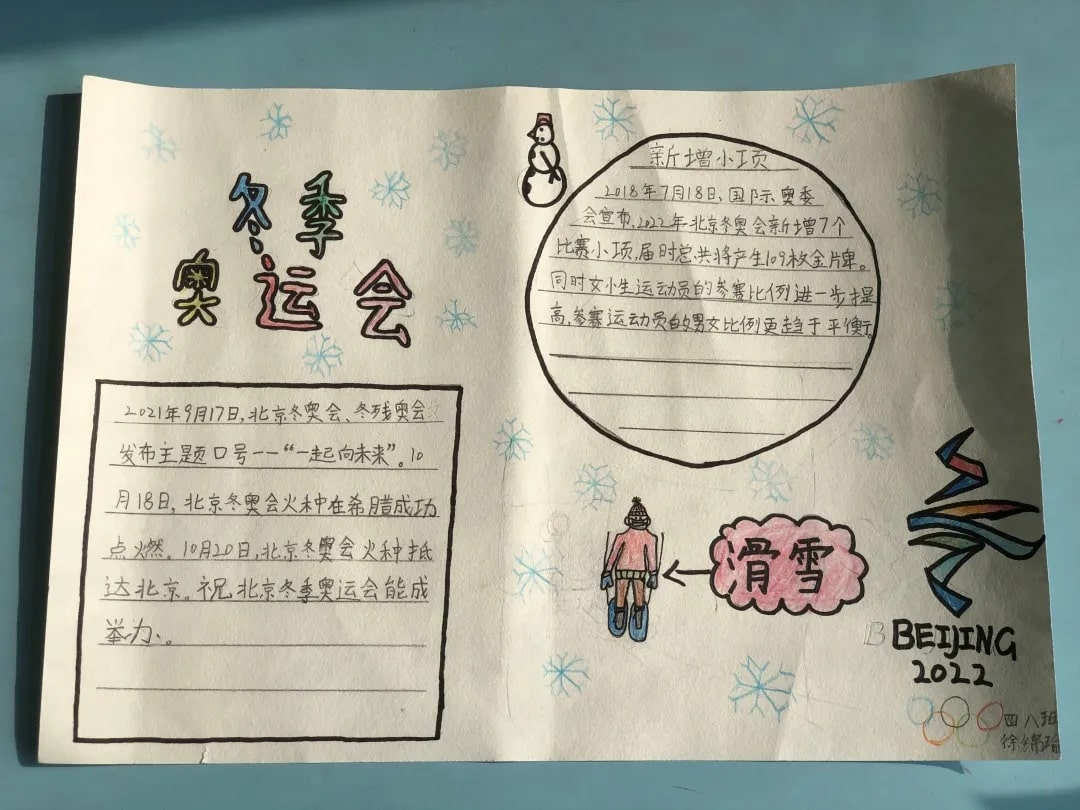 冬季
奥运会
2021年9月17日,北京冬奥会、冬残奥会
发布主题口号——“一起向未来”。10
月18日,北京冬奥会火种在希腊成功
点燃。10月20日,北京冬奥会火种抵
达北京。祝北京冬季奥运会能成
举办。
新增小项
2018年7月18日,国际奥委
会宣布,2022年北京冬奥会新增7个
比赛小项,届时总共将产生109枚金牌。
同时女小生运动员的参赛比例进一步提
高,参赛运动员的男女比例更趋于平衡。
滑雪
B BEIJING
2022
四八班
徐